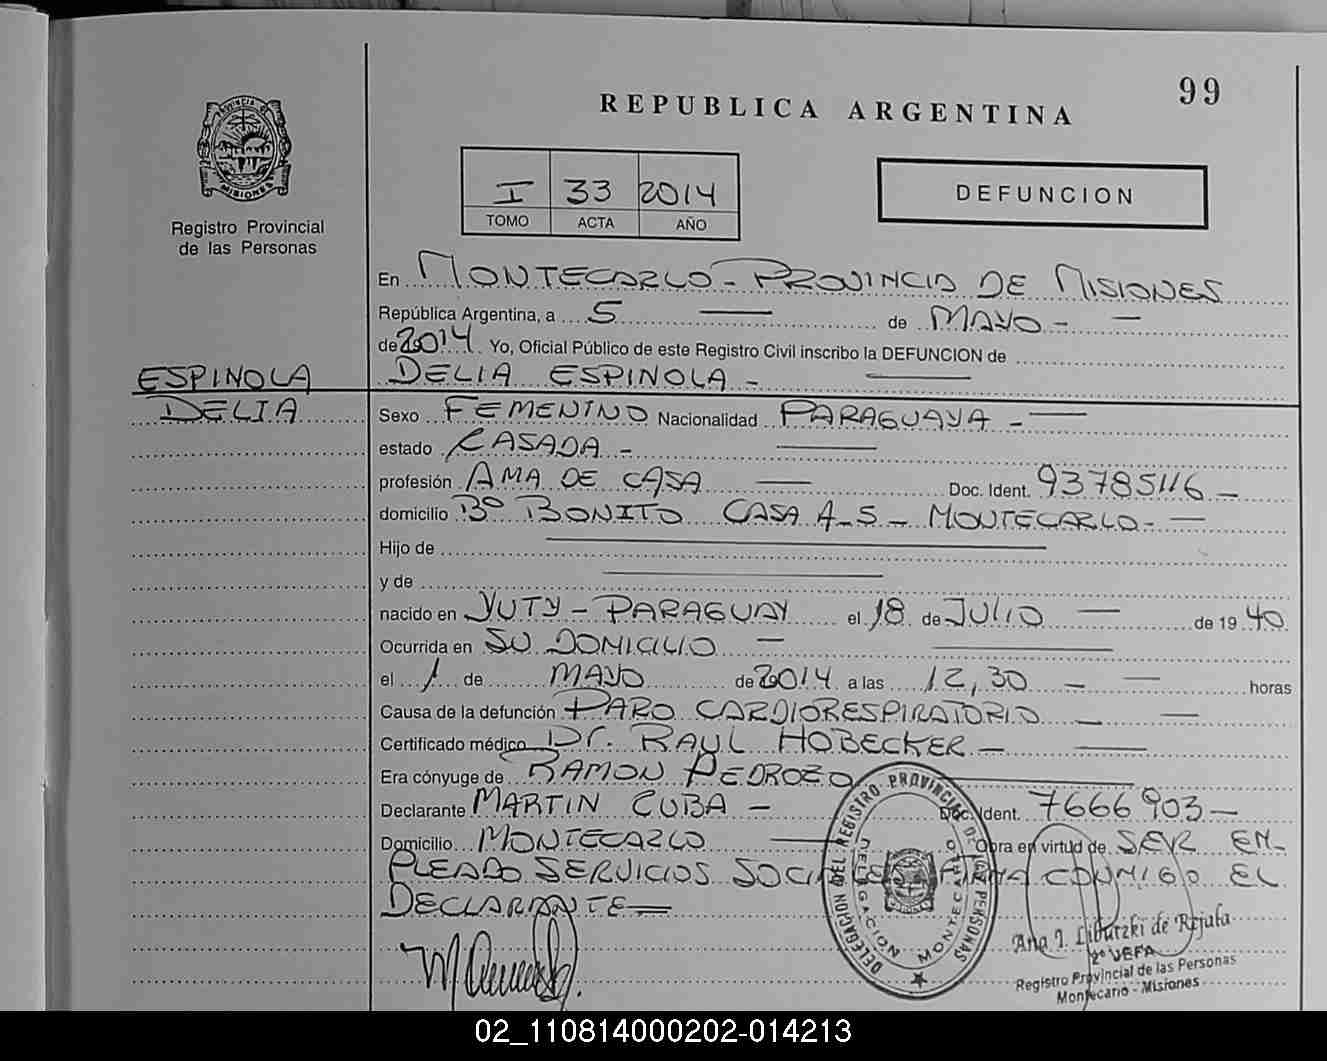 99
REPUBLICA ARGENTINA
PROVINCIA DE
MISIONES
Registro Provincial
de las Personas
I 33 2014
TOMO ACTA AÑO
DEFUNCION
En MONTECARLO - PROVINCIA DE MISIONES
República Argentina, a 5 de MAYO -
de 2014 Yo, Oficial Público de este Registro Civil inscribo la DEFUNCION de
ESPINOLA
DELIA
DELIA ESPINOLA -
Sexo FEMENINO Nacionalidad PARAGUAYA -
estado CASADA -
profesión AMA DE CASA Doc. Ident. 93785116 -
domicilio Bº BONITO CASA A-5 - MONTECARLO -
Hijo de
y de
nacido en YUTY - PARAGUAY el 18 de JULIO de 19 40
Ocurrida en SU DOMICILIO
el 1 de MAYO de 2014 a las 12,30 - horas
Causa de la defunción PARO CARDIORESPIRATORIO
Certificado médico Dr. RAUL HOBECKER -
Era cónyuge de RAMON PEDROZO
Declarante MARTIN CUBA - Doc. Ident. 7666903 -
Domicilio MONTECARLO Obra en virtud de SER EM-
PLEADO SERVICIOS SOCIALES FIRMA CONMIGO EL
DECLARANTE
DELEGACION DEL REGISTRO PROVINCIAL DE LAS PERSONAS
DELEGACION MONTECARLO
Ana I. Liburzki de Rejala
2º JEFA
Registro Provincial de las Personas
Montecarlo - Misiones
02_110814000202-014213